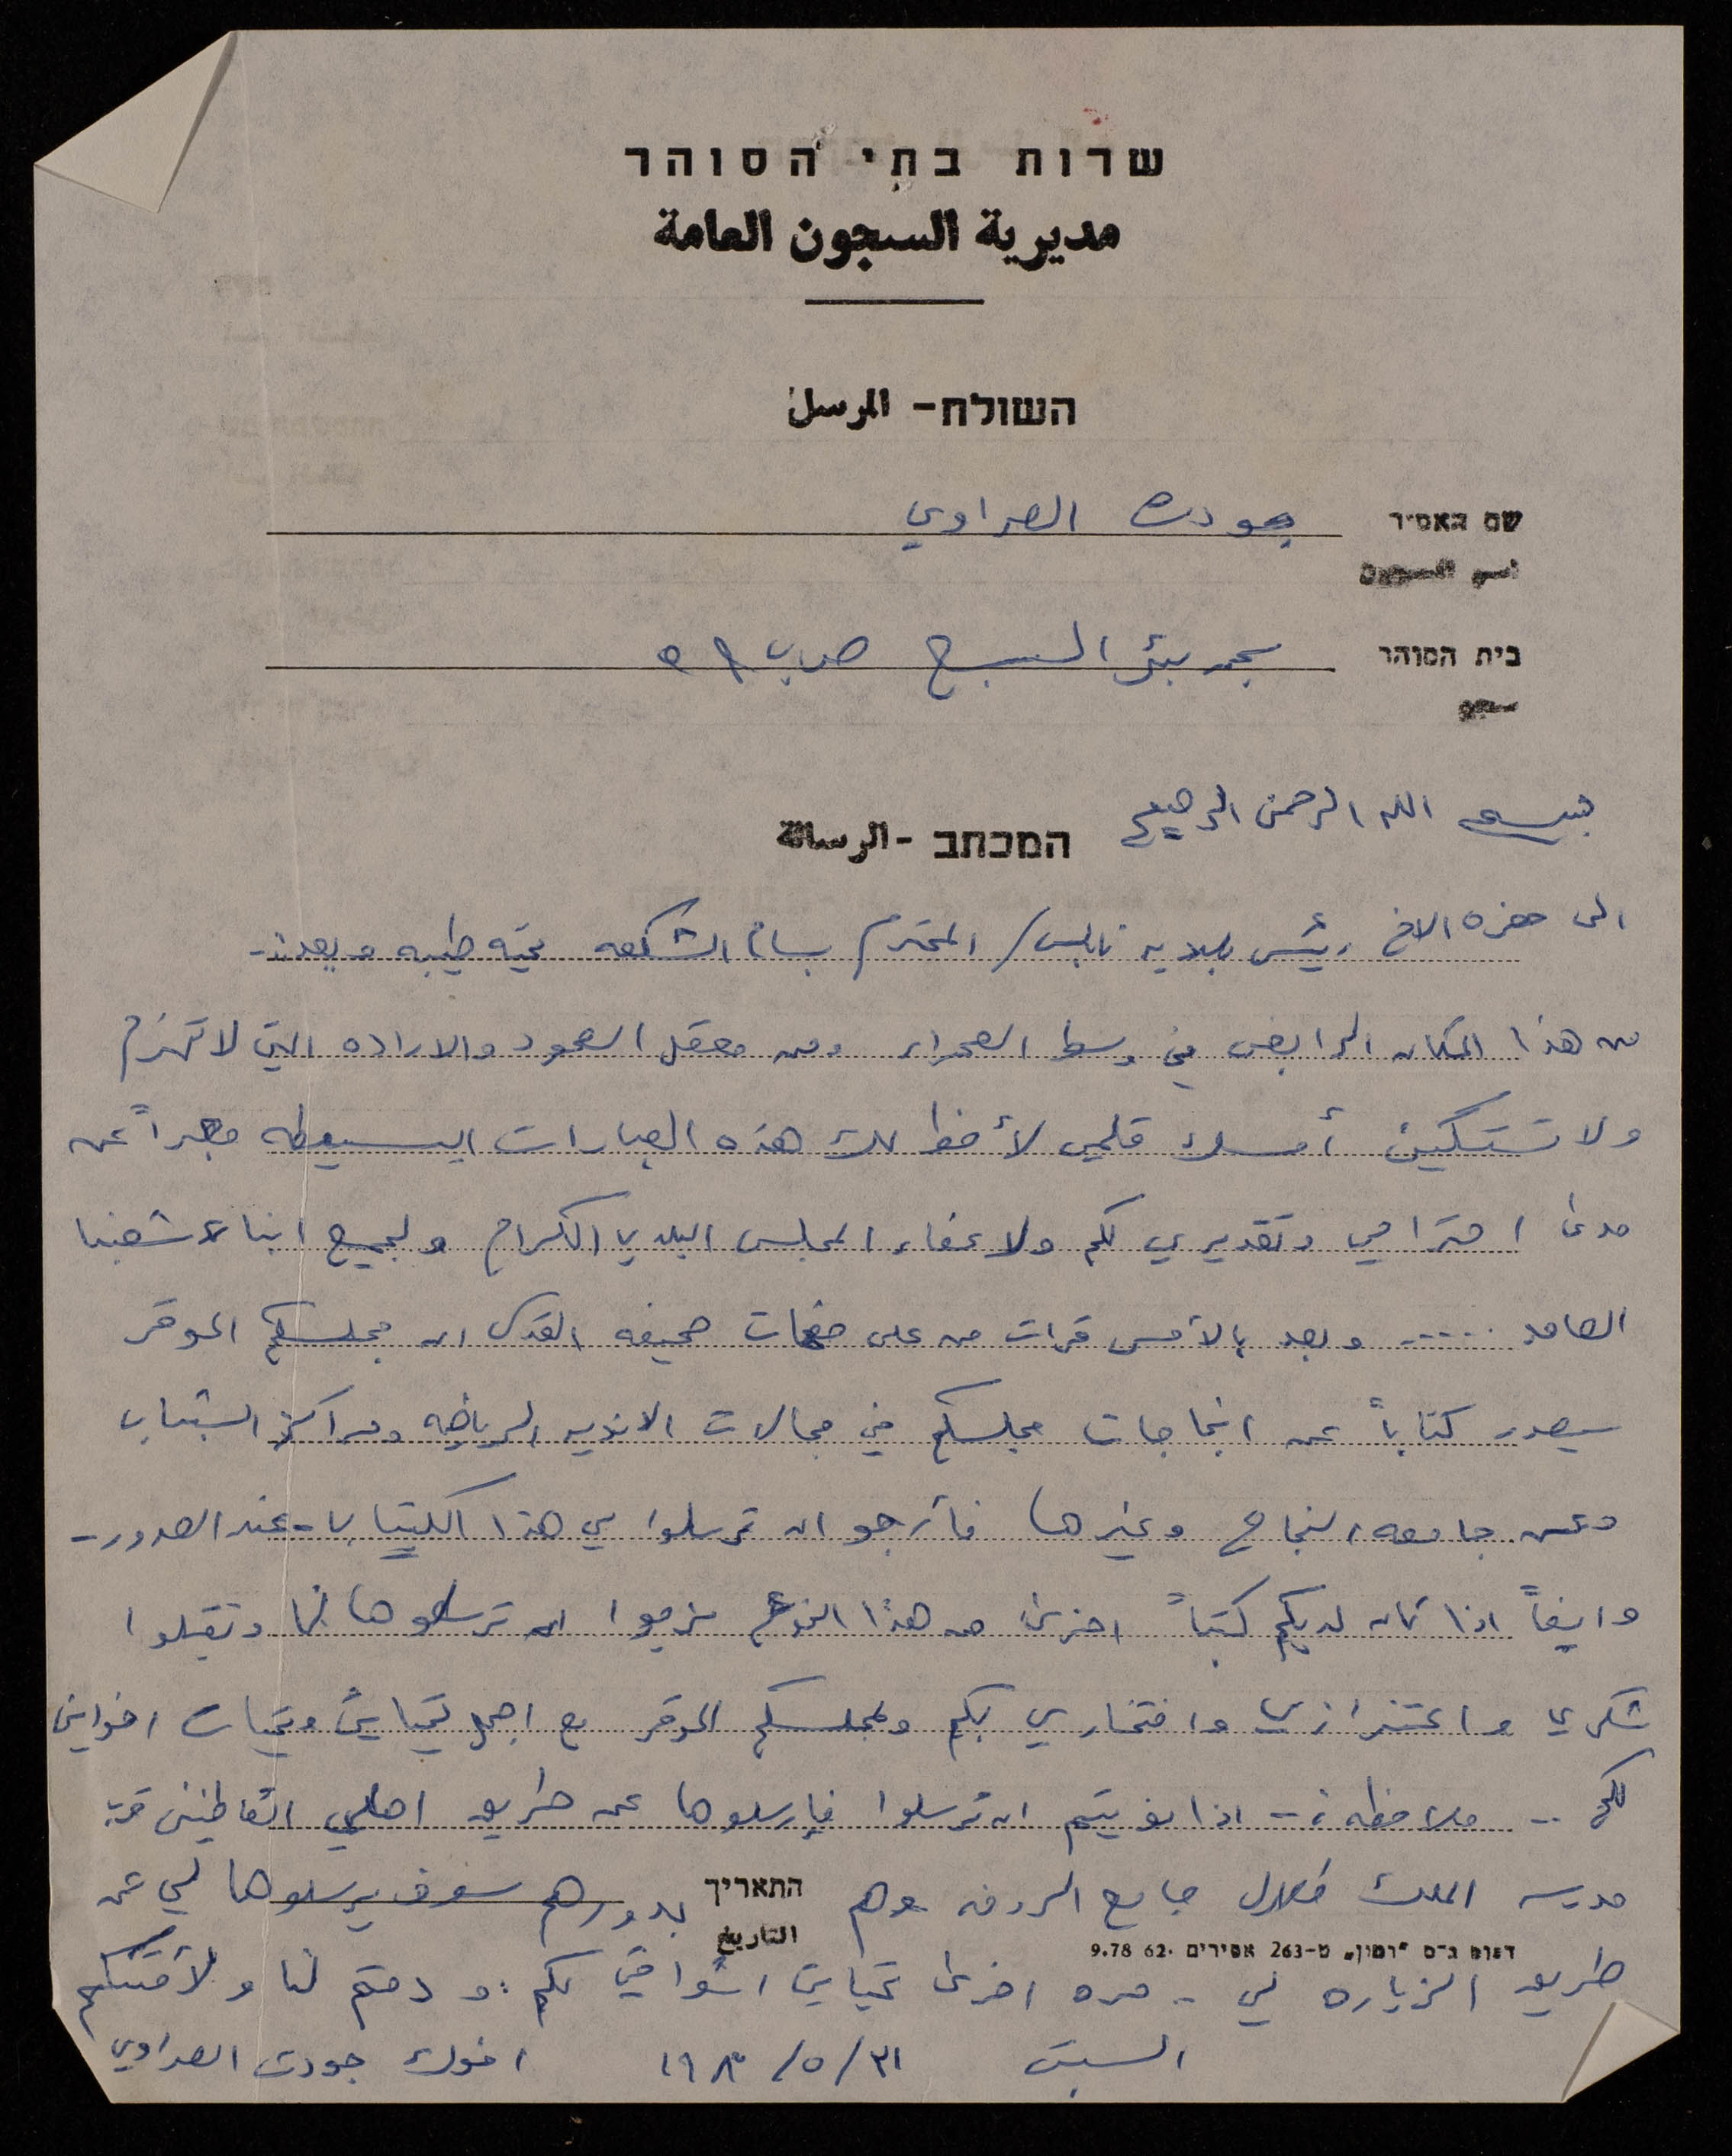 שרות בתי הסוהר
مديرية السجون العامة
השולח - المرسل
שם האסיר جودت الصراوي
اسم المسجون
בית הסוהר سجن بئر السبع ص.ب ٥٩
سجن
بسم الله الرحمن الرحيم
המכתב - الرسالة
الى حضره الاخ رئيس بلديه نابلس / المحترم بسام الشكعه تحيه طيبه وبعد :-
من هذا المكان الرابض في وسط الصحراء ومن معقل الصمود والاراده التي لا تهزم
ولا تستكين أمسك قلمي لأخط لك هذه العبارات البسيطه معبراً عن
مدى احترامي وتقديري لكم ولاعضاء المجلس البلدي الكرام ولجميع ابناء شعبنا
الصامد ..... وبعد بالأمس قرات من على صفحات صحيفه القدس ان مجلسكم الموقر
سيصدر كتاباً عن انجاجات مجلسكم في مجالات الانديه الرياضه ومراكز الشباب
وعن جامعه النجاح وغيرها فأرجو ان ترسلوا لي هذا الكتيب - عند الصدور -
وايضاً اذا كان لديكم كتباً اخرى من هذا النوع نرجوا ان ترسلوها لنا وتقبلوا
شكري واعتزازي وافتخاري بكم ولمجلسكم الموقر مع اجمل تحياتي وتحيات اخواني
لكم .. ملاحظه :- اذا نويتم ان ترسلوا فإرسلوها عن طريق اهلي القاطنين قرب
مدرسه الملك طلال جامع الروضه وهم התאריך بدورهم سوف يرسلوها لي عن
التاريخ
דפוס ב״ס "רמון" ט-263 אסירים 62. 9.78
طريق الزياره لي - مره اخرى تحياتي اشواقي لكم : ودمتم لنا ولأمتكم
السبت ٣١/٥/١٩٨٠ اخوك جودت الصراوي